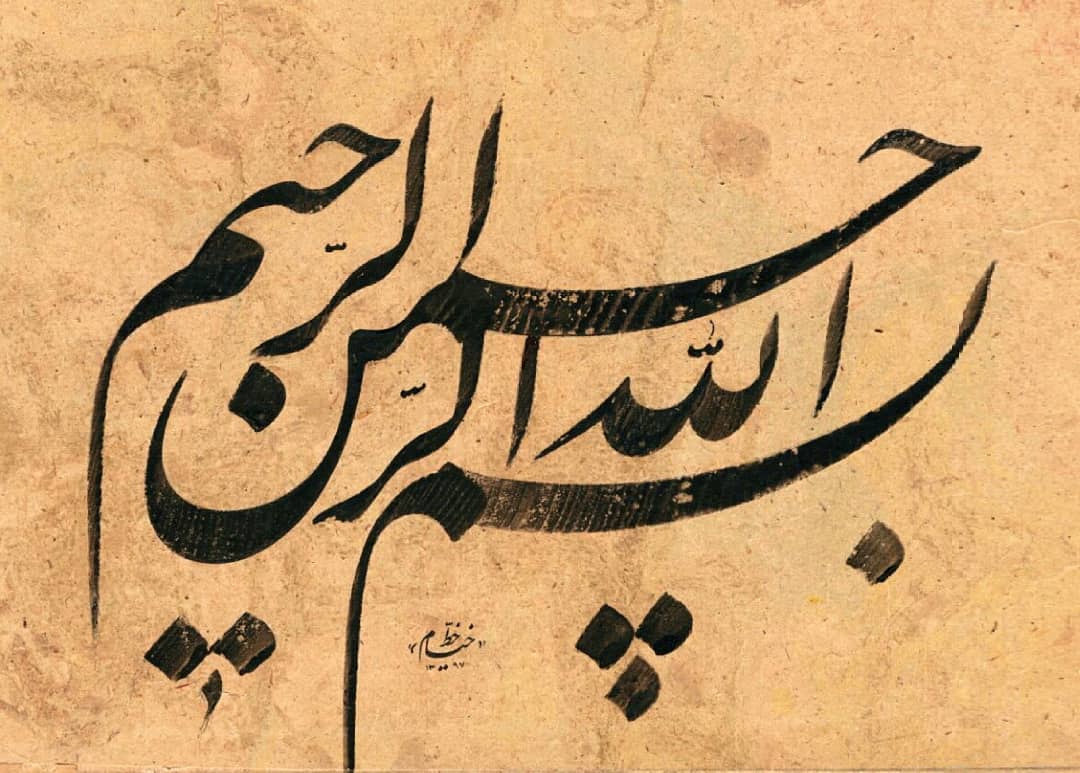 بسم الله الرّحمن الرّحیم
خط خیام
۱۳۹۷